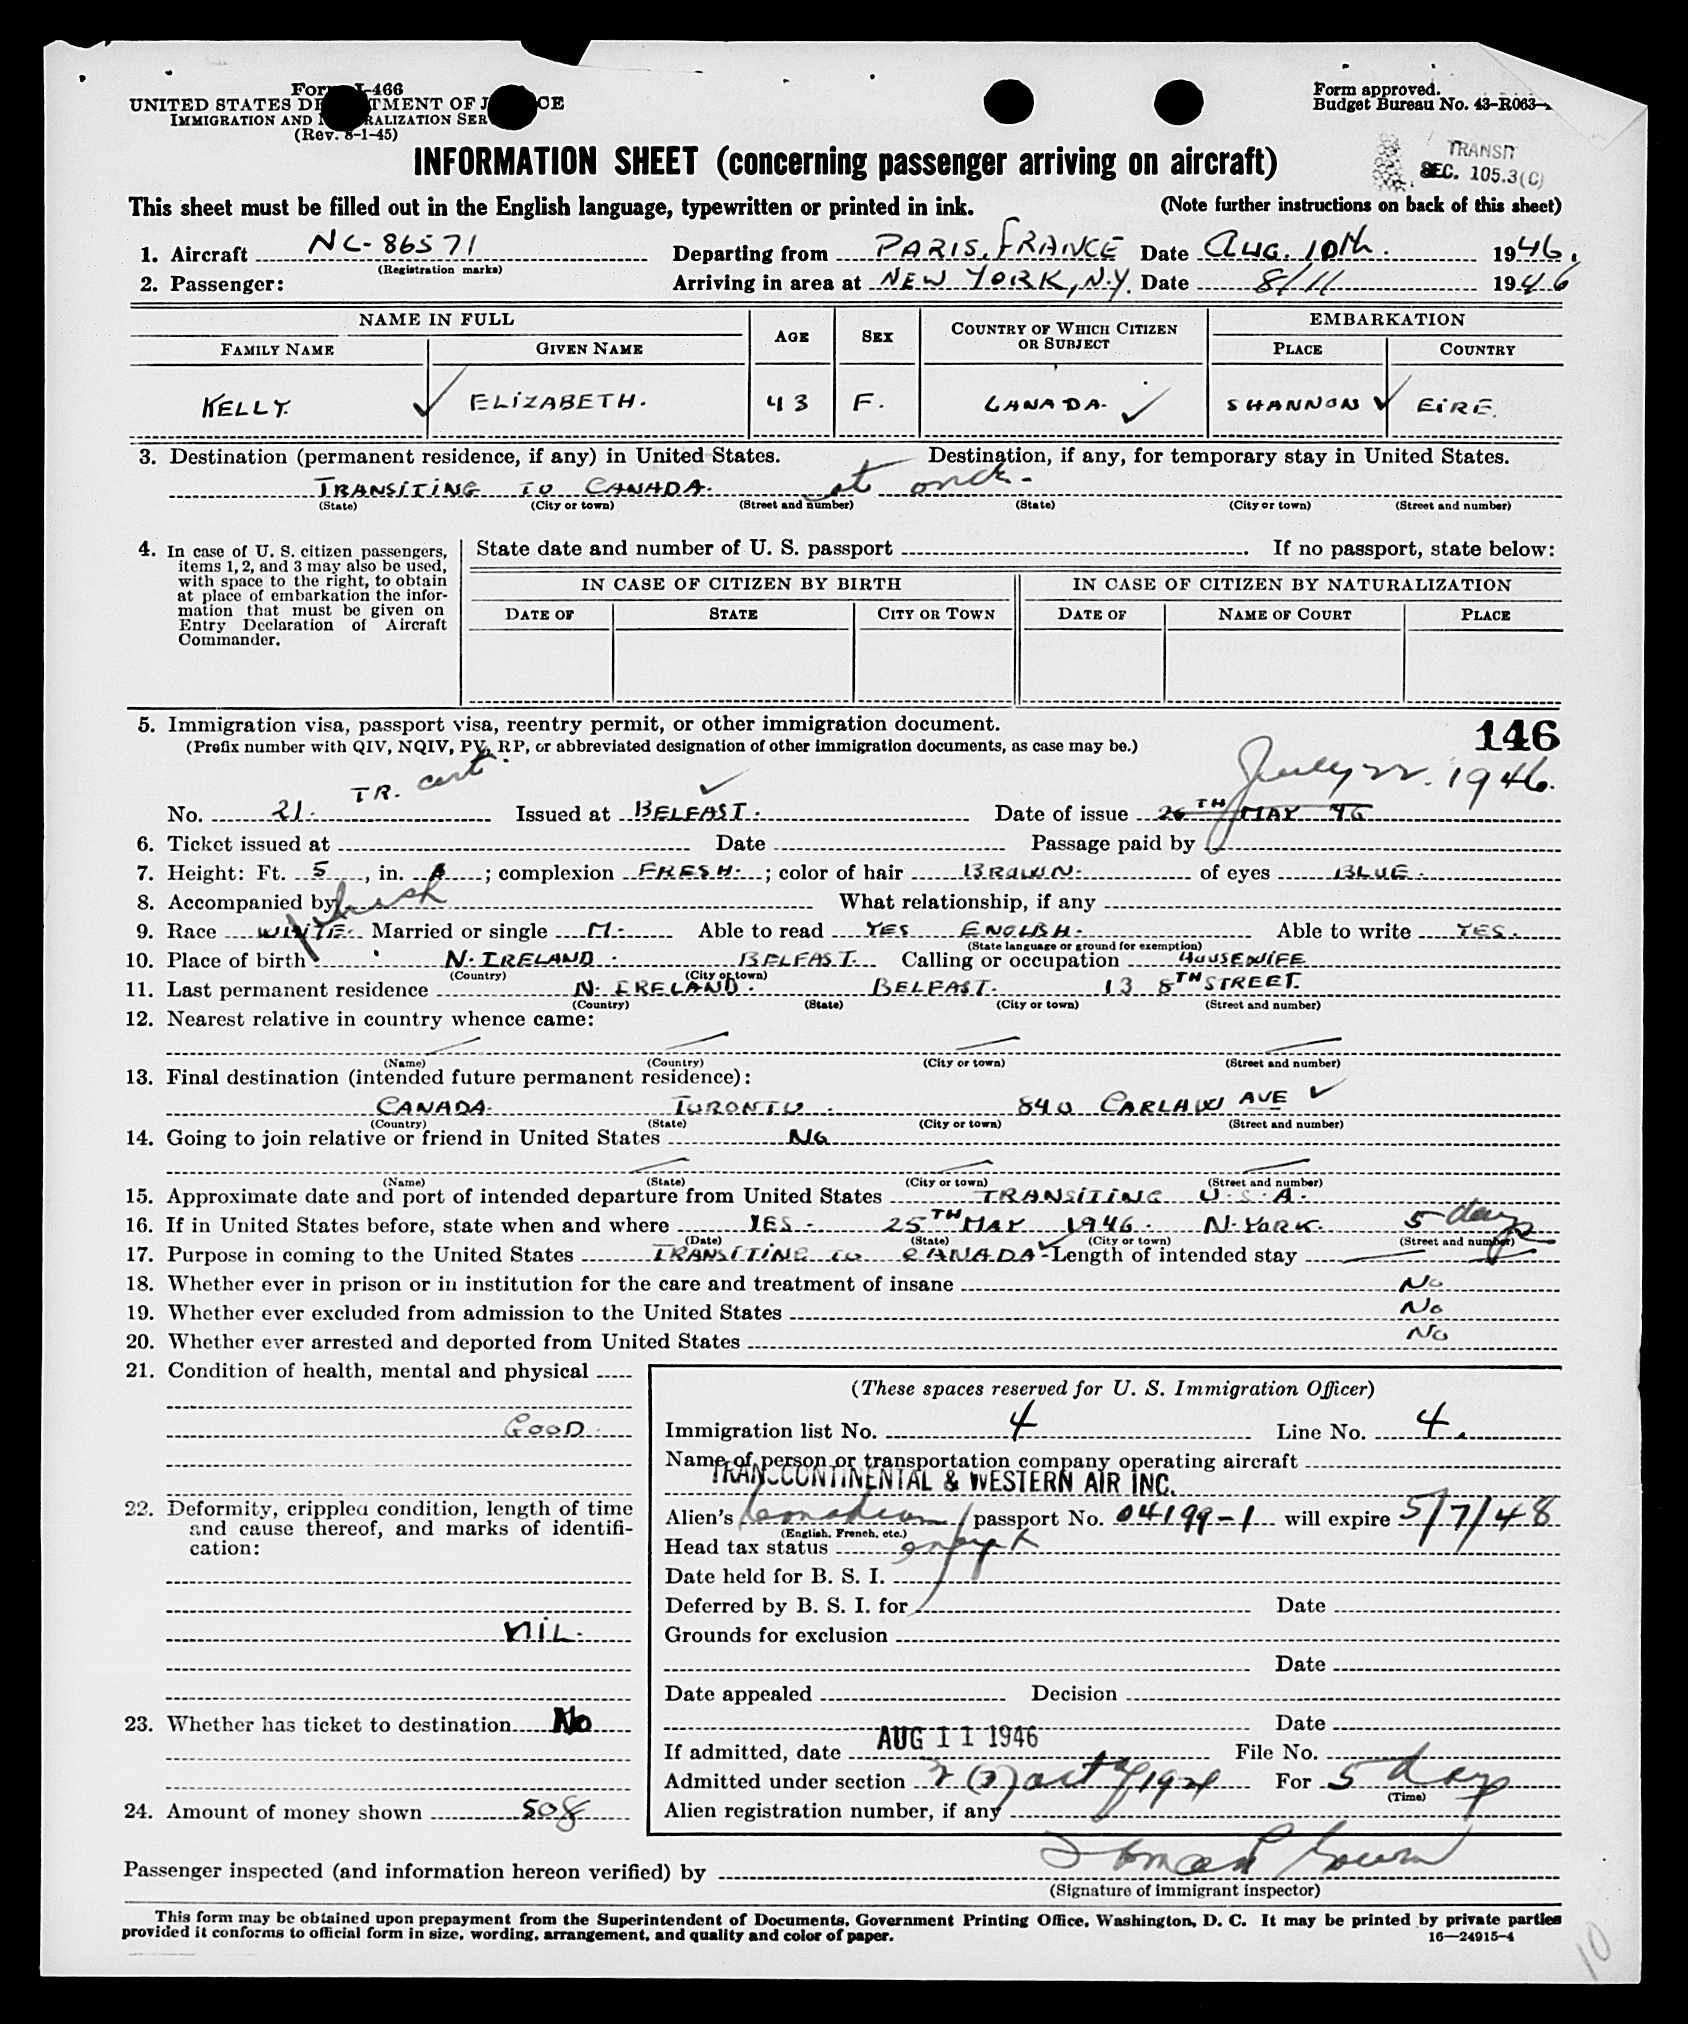 Form I-466
UNITED STATES DEPARTMENT OF JUSTICE
IMMIGRATION AND NATURALIZATION SERVICE
(Rev. 8-1-45)
Form approved.
Budget Bureau No. 43-R063-
TRANSIT
SEC. 105.3(C)
INFORMATION SHEET (concerning passenger arriving on aircraft)
This sheet must be filled out in the English language, typewritten or printed in ink. (Note further instructions on back of this sheet)
1. Aircraft NC-86571 Departing from PARIS, FRANCE Date AUG. 10th. 1946.
(Registration marks)
2. Passenger: Arriving in area at NEW YORK, N.Y. Date 8/11 1946
NAME IN FULL AGE SEX COUNTRY OF WHICH CITIZEN OR SUBJECT EMBARKATION
FAMILY NAME GIVEN NAME PLACE COUNTRY
KELLY. ELIZABETH. 43 F. CANADA. SHANNON EIRE.
3. Destination (permanent residence, if any) in United States. Destination, if any, for temporary stay in United States.
TRANSITING TO CANADA. at once.
(State) (City or town) (Street and number) (State) (City or town) (Street and number)
4. In case of U. S. citizen passengers, items 1, 2, and 3 may also be used, with space to the right, to obtain at place of embarkation the information that must be given on Entry Declaration of Aircraft Commander.
State date and number of U. S. passport . If no passport, state below:
IN CASE OF CITIZEN BY BIRTH IN CASE OF CITIZEN BY NATURALIZATION
DATE OF STATE CITY OR TOWN DATE OF NAME OF COURT PLACE
5. Immigration visa, passport visa, reentry permit, or other immigration document.
146
(Prefix number with QIV, NQIV, PV, RP, or abbreviated designation of other immigration documents, as case may be.)
TR. cert. July 22. 1946.
No. 21. Issued at BELFAST. Date of issue 26TH MAY 46
6. Ticket issued at Date Passage paid by
7. Height: Ft. 5, in. ; complexion FRESH. ; color of hair BROWN. of eyes BLUE.
8. Accompanied by What relationship, if any
Irish
9. Race WHITE. Married or single M. Able to read YES ENGLISH. Able to write YES.
(State language or ground for exemption)
10. Place of birth N. IRELAND. BELFAST. Calling or occupation HOUSEWIFE
(Country) (City or town)
11. Last permanent residence N. IRELAND. BELFAST. 13 8TH STREET.
(Country) (State) (City or town) (Street and number)
12. Nearest relative in country whence came:
(Name) (Country) (City or town) (Street and number)
13. Final destination (intended future permanent residence):
CANADA. TORONTO. 840 CARLAW AVE
(Country) (State) (City or town) (Street and number)
14. Going to join relative or friend in United States NO
(Name) (State) (City or town) (Street and number)
15. Approximate date and port of intended departure from United States TRANSITING U.S.A.
16. If in United States before, state when and where YES. 25TH MAY 1946. N. YORK. 5 days
(Date) (State) (City or town) (Street and number)
17. Purpose in coming to the United States TRANSITING TO CANADA Length of intended stay
18. Whether ever in prison or in institution for the care and treatment of insane NO
19. Whether ever excluded from admission to the United States NO
20. Whether ever arrested and deported from United States NO
21. Condition of health, mental and physical
GOOD.
22. Deformity, crippled condition, length of time and cause thereof, and marks of identification:
NIL.
23. Whether has ticket to destination No
24. Amount of money shown 50$
(These spaces reserved for U. S. Immigration Officer)
Immigration list No. 4 Line No. 4.
Name of person or transportation company operating aircraft
TRANSCONTINENTAL & WESTERN AIR INC.
Alien's Canadian passport No. 04199-1 will expire 5/7/48
(English, French, etc.)
Head tax status
Date held for B. S. I.
Deferred by B. S. I. for Date
Grounds for exclusion
Date
Date appealed Decision
Date
If admitted, date AUG 11 1946 File No.
Admitted under section 3(3) act of 1924 For 5 days
(Time)
Alien registration number, if any
Passenger inspected (and information hereon verified) by
(Signature of immigrant inspector)
This form may be obtained upon prepayment from the Superintendent of Documents, Government Printing Office, Washington, D. C. It may be printed by private parties
provided it conforms to official form in size, wording, arrangement, and quality and color of paper.
16—24915-4
10